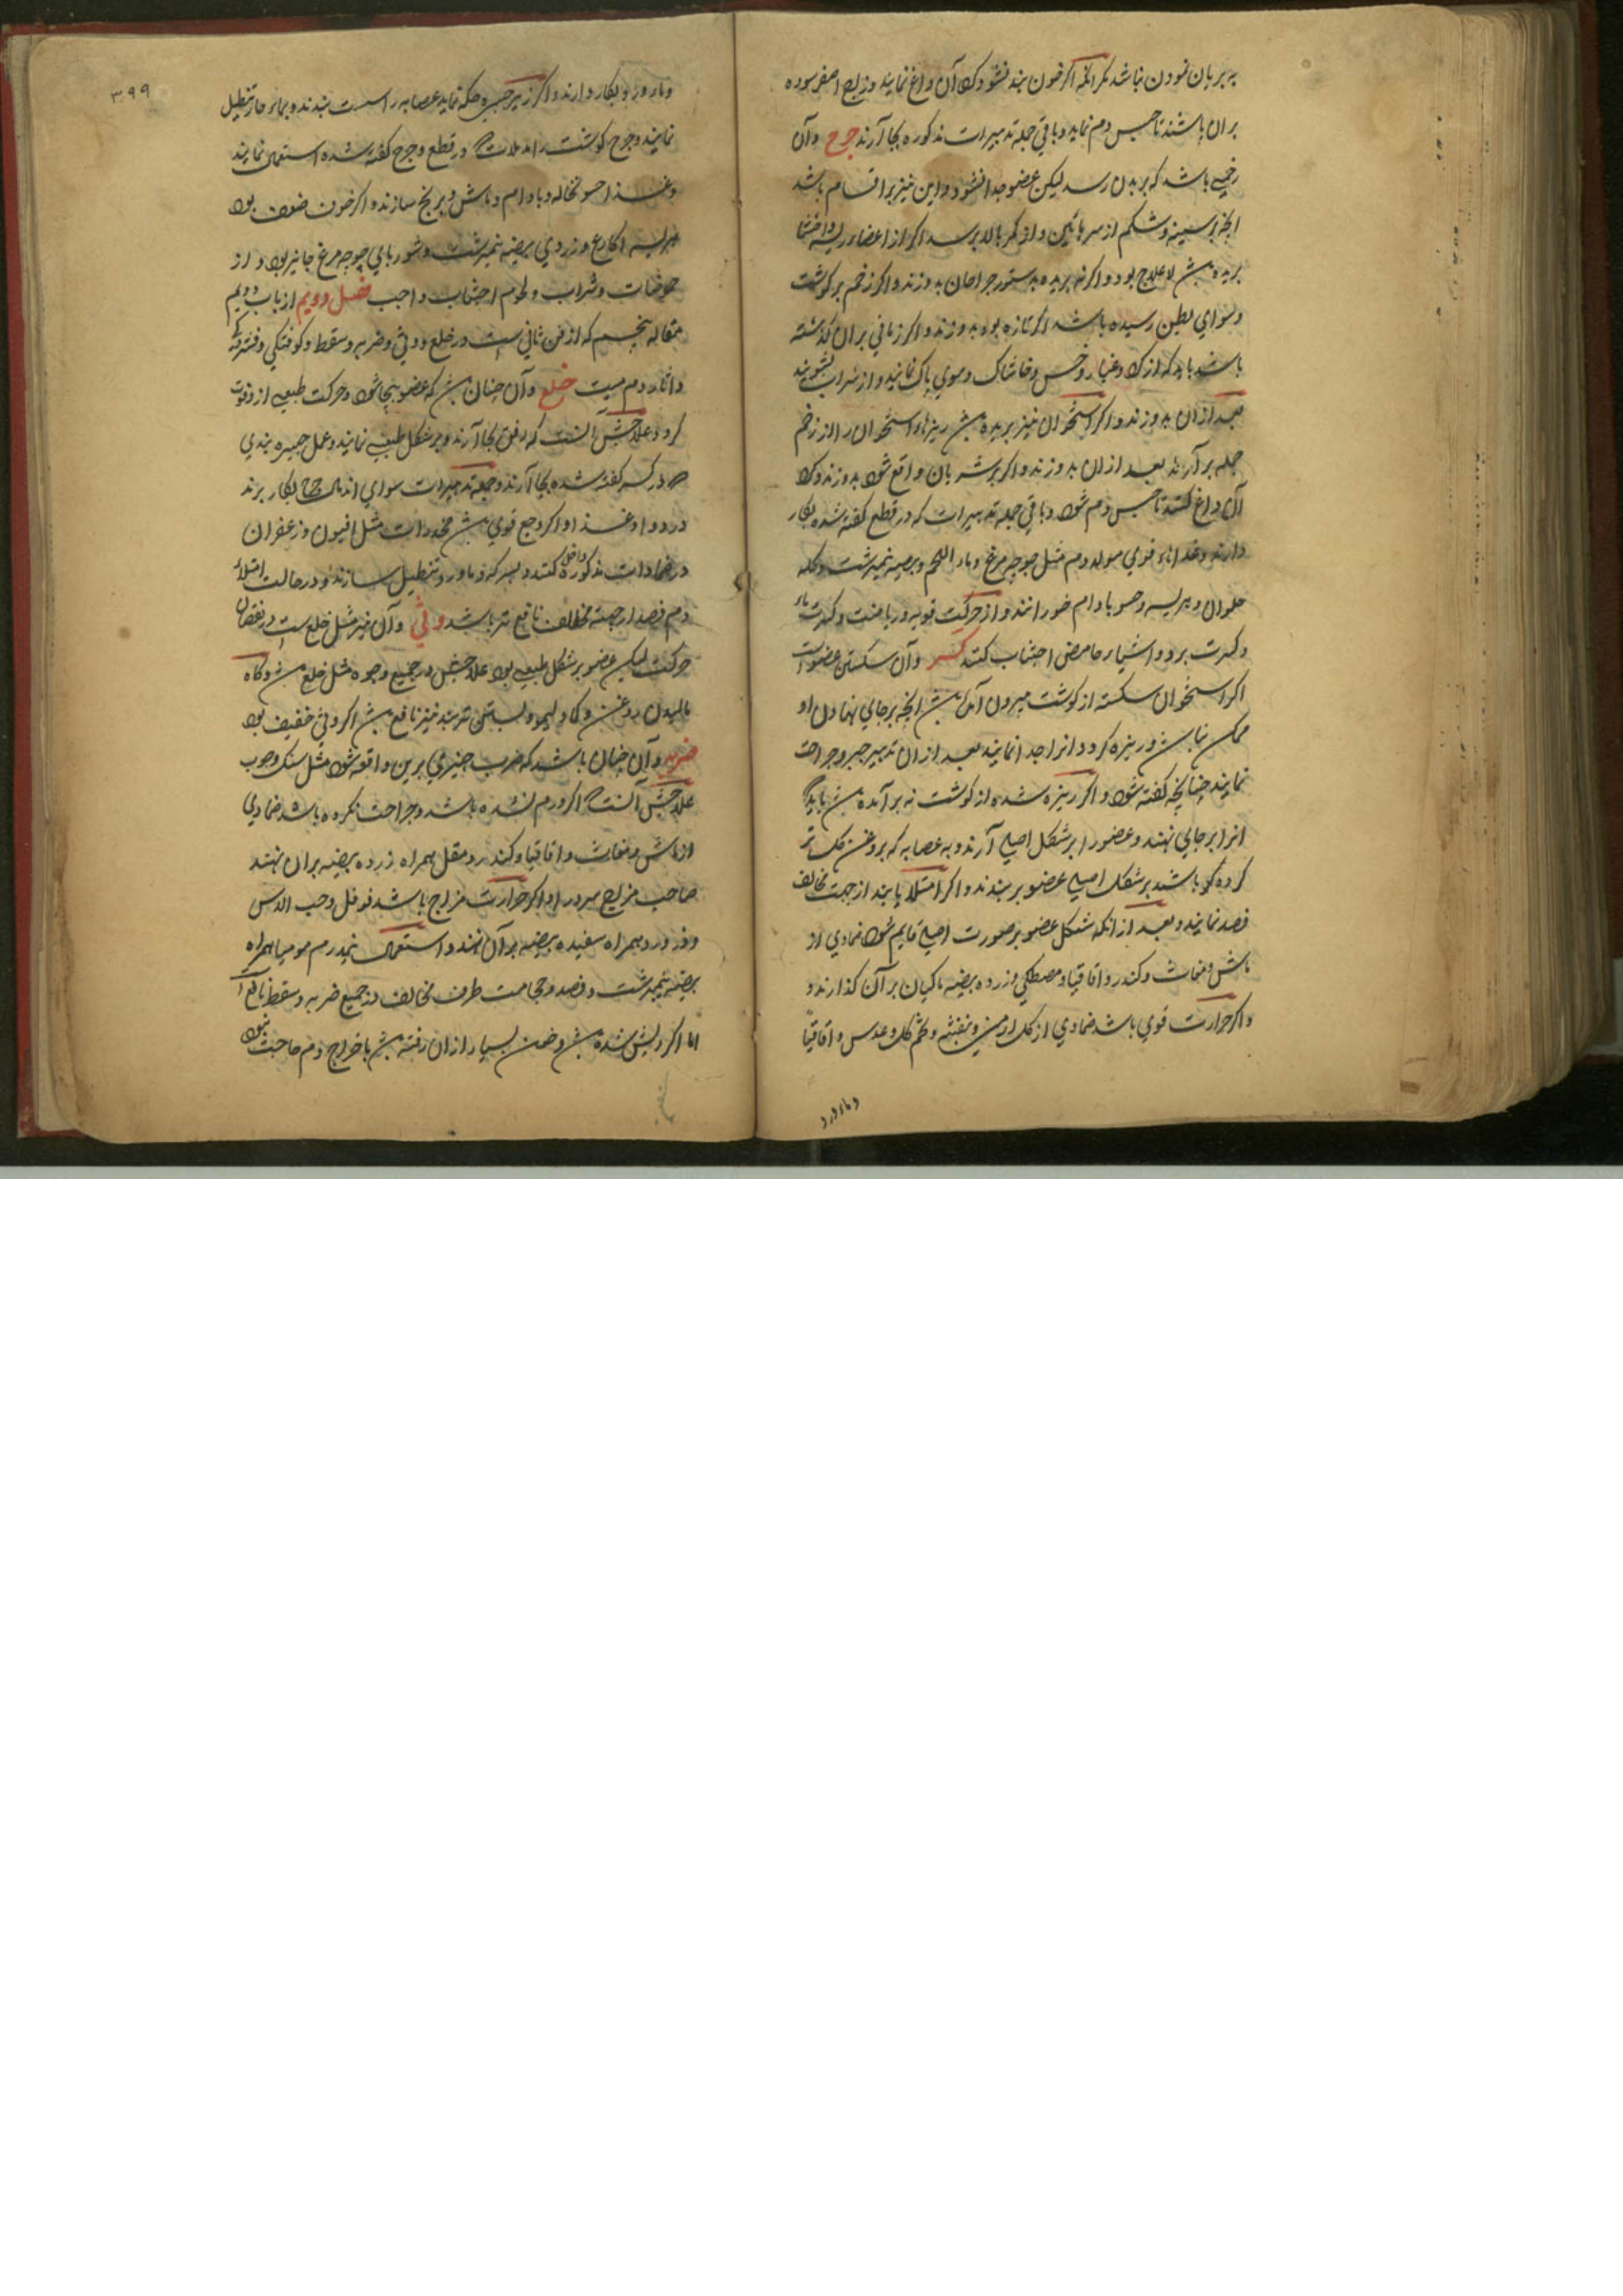 به بریان نمودن نباشد مکر انکه اکر خون بند نشود کـ آن داغ نمایند و زاج اصفر سوده
بران پاشند تا حبس دم نماید و باقي جمله تدبیرات مذکوره بجا آرند جرح وآن
زخمي باشد که ببدن رسد لیکن عضو جدا نشود و این نیز بر اقسام باشد
انچه بر سینه و شکم از سر پائین و از کمر بالا برسد اکر از اعضاء رئیسه و احشا
بریده بش لا علاج بود و اکر نه بریده بدستور جراحان بدوزند و اکر زخم بر کوشت
و سواي بطن رسیده باشد اکر تازه بود بدوزند و اکر زماني بران کذشته
باشد باید که از کرد و غبار و خس و خاشاک و موي پاک نمایند و از شراب بشویند
بعد ازان بدوزند و اکر استخوان نیز بریده بش ریزهاء استخوان را از زخم
جمله برآرند بعد ازان بدوزند و اکر بر شریان واقع شود بدوزند و کـ
آن داغ کنند تا حبس دم شود و باقي جمله تدبیرات که در قطع کفته شده بکار
دارند و غذاهاء قوي مولد دم مثل جوجه مرغ و ماء اللحم و بیضه نیمبرشت و کله
حلوان و هریسه و حسو بادام خورانند و از حرکت قویه و ریاضت و کثرت ماء
و کثرت برد و اشیاء حامض اجتناب کنند کسر وآن شکستن عضو است
اکر استخوان شکسته از کوشت بیرون آمده بش انچه بر جاي نهادن او
ممکن نباشد و ریزه کردد انرا جدا نمایند بعد ازان تدبیر جبر و جراحت
نمایند چنانچه کفته شود و اکر ریزه شده از کوشت نه برآمده بش باید که
انرا بر جاي نهند و عضو را بر شکل اصلي آرند و به عصابه که بروغن کل تر
کرده باشند بر شکل اصلي عضو بر بندند و اکر امتلا یابند از جهت مخالف
فصد نمایند و بعد از انکه شکل عضو بر صورت اصلي قایم شود ضمادي از
ماش و مغاث و کندر و اقاقیا و مصطکي و زرده بیضه ماکیان بر آن کذارند و
و اکر حرارت قوي باشد ضمادي از کل ارمني و بنفشه و تخم کل و عدس و اقاقیا
و ماء ورد
۳۹۹
و ماء ورد بکار دارند و اکر زیر جبیره حکه نماید عصابه را سست بندند و بماء حار تنطیل
نمایند و جرح کوشت را در قطع و جرح کفته شده استعمال نمایند
و غذا حسو نخاله و بادام و ماش و برنج سازند و اکر خون ضعیف بود
هریسه اکارع و زردي بیضه نیمبرشت و شورباي جوجه مرغ جایز بود و از
حموضات و شراب و لحوم اجتناب واجب فصل دویم از باب دویم
مقاله پنجم که از فن ثاني ست در خلع و وثي و ضربه و سقطه و کوفتکي
و اثار دم میت خلع وآن چنان بش که عضو بیجا شود و حرکت طبیعي از و فوت
کردد علاجش آنست که برفق بجا آرند و بر شکل طبیعي نمایند و عمل جبیره بندي
که در کسر کفته شده بجا آرند و جمله تدبیرات سواي اندمال جراح بکار برند
در دوا و غذا و اکر وجع قوي بش مخدرات مثل افیون و زعفران
در ضمادات مذکوره داخل کنند و بسرکه و ماء ورد تنطیل سازند و در حالت امتلاء
دم فصد از جهت مخالف نافع تر باشد وثي وآن نیز مثل خلع ست در نقصان
حرکت لیکن عضو بر شکل طبیعي بود علاجش در جمیع وجوه مثل خلع بش و کاه
مالیدن روغن و کاه و لیمو و بستن تربند نیز نافع بش اکر وثي خفیف بود
ضربه وآن چنان باشد که ضرب چیزي برین واقعه شود مثل سنک و چوب
علاجش آنست که اکر ورم نشده باشد و جراحت نکرده باشد ضمادي
از ماش و مغاث و اقاقیا و کندر و مقل همراه زرده بیضه بران نهند
صاحب مزاج سرد را و اکر حرارت مزاج باشد فوفل و حب الاس
و زر ورد همراه سفیده بیضه بر آن نهند و استعمال نیمدرم مومیا همراه
بیضه نیمبرشت و فصد و حجامت طرف مخالف در جمیع ضربه و سقطه نافع است
اما اکر ریش شده بش و خون بسیار ازان رفته بش باخراج دم حاجت نبود